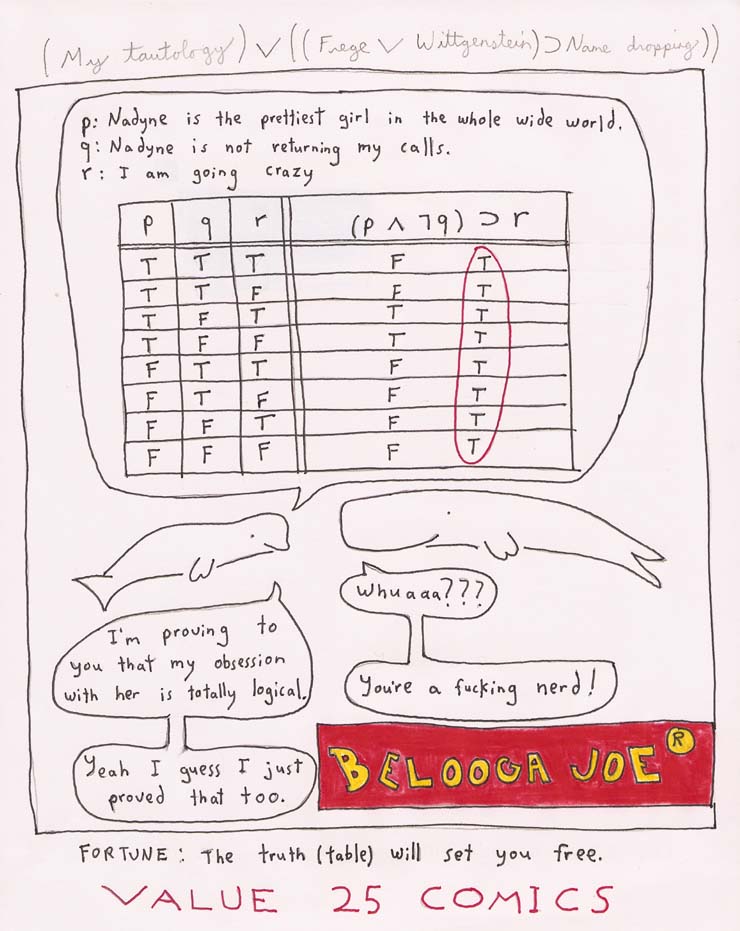 (My tautology) ∨ ((Frege ∨ Wittgenstein) ⊃ Name dropping))
p: Nadyne is the prettiest girl in the whole wide world.
q: Nadyne is not returning my calls.
r: I am going crazy
p q r (p ∧ ¬q) ⊃ r
T T T F T
T T F F T
T F T T T
T F F T T
F T T F T
F T F F T
F F T F T
F F F F T
Whuaaa???
You're a fucking nerd!
I'm proving to
you that my obsession
with her is totally logical.
Yeah I guess I just
proved that too.
BELOOGA JOE®
FORTUNE: The truth (table) will set you free.
VALUE 25 COMICS